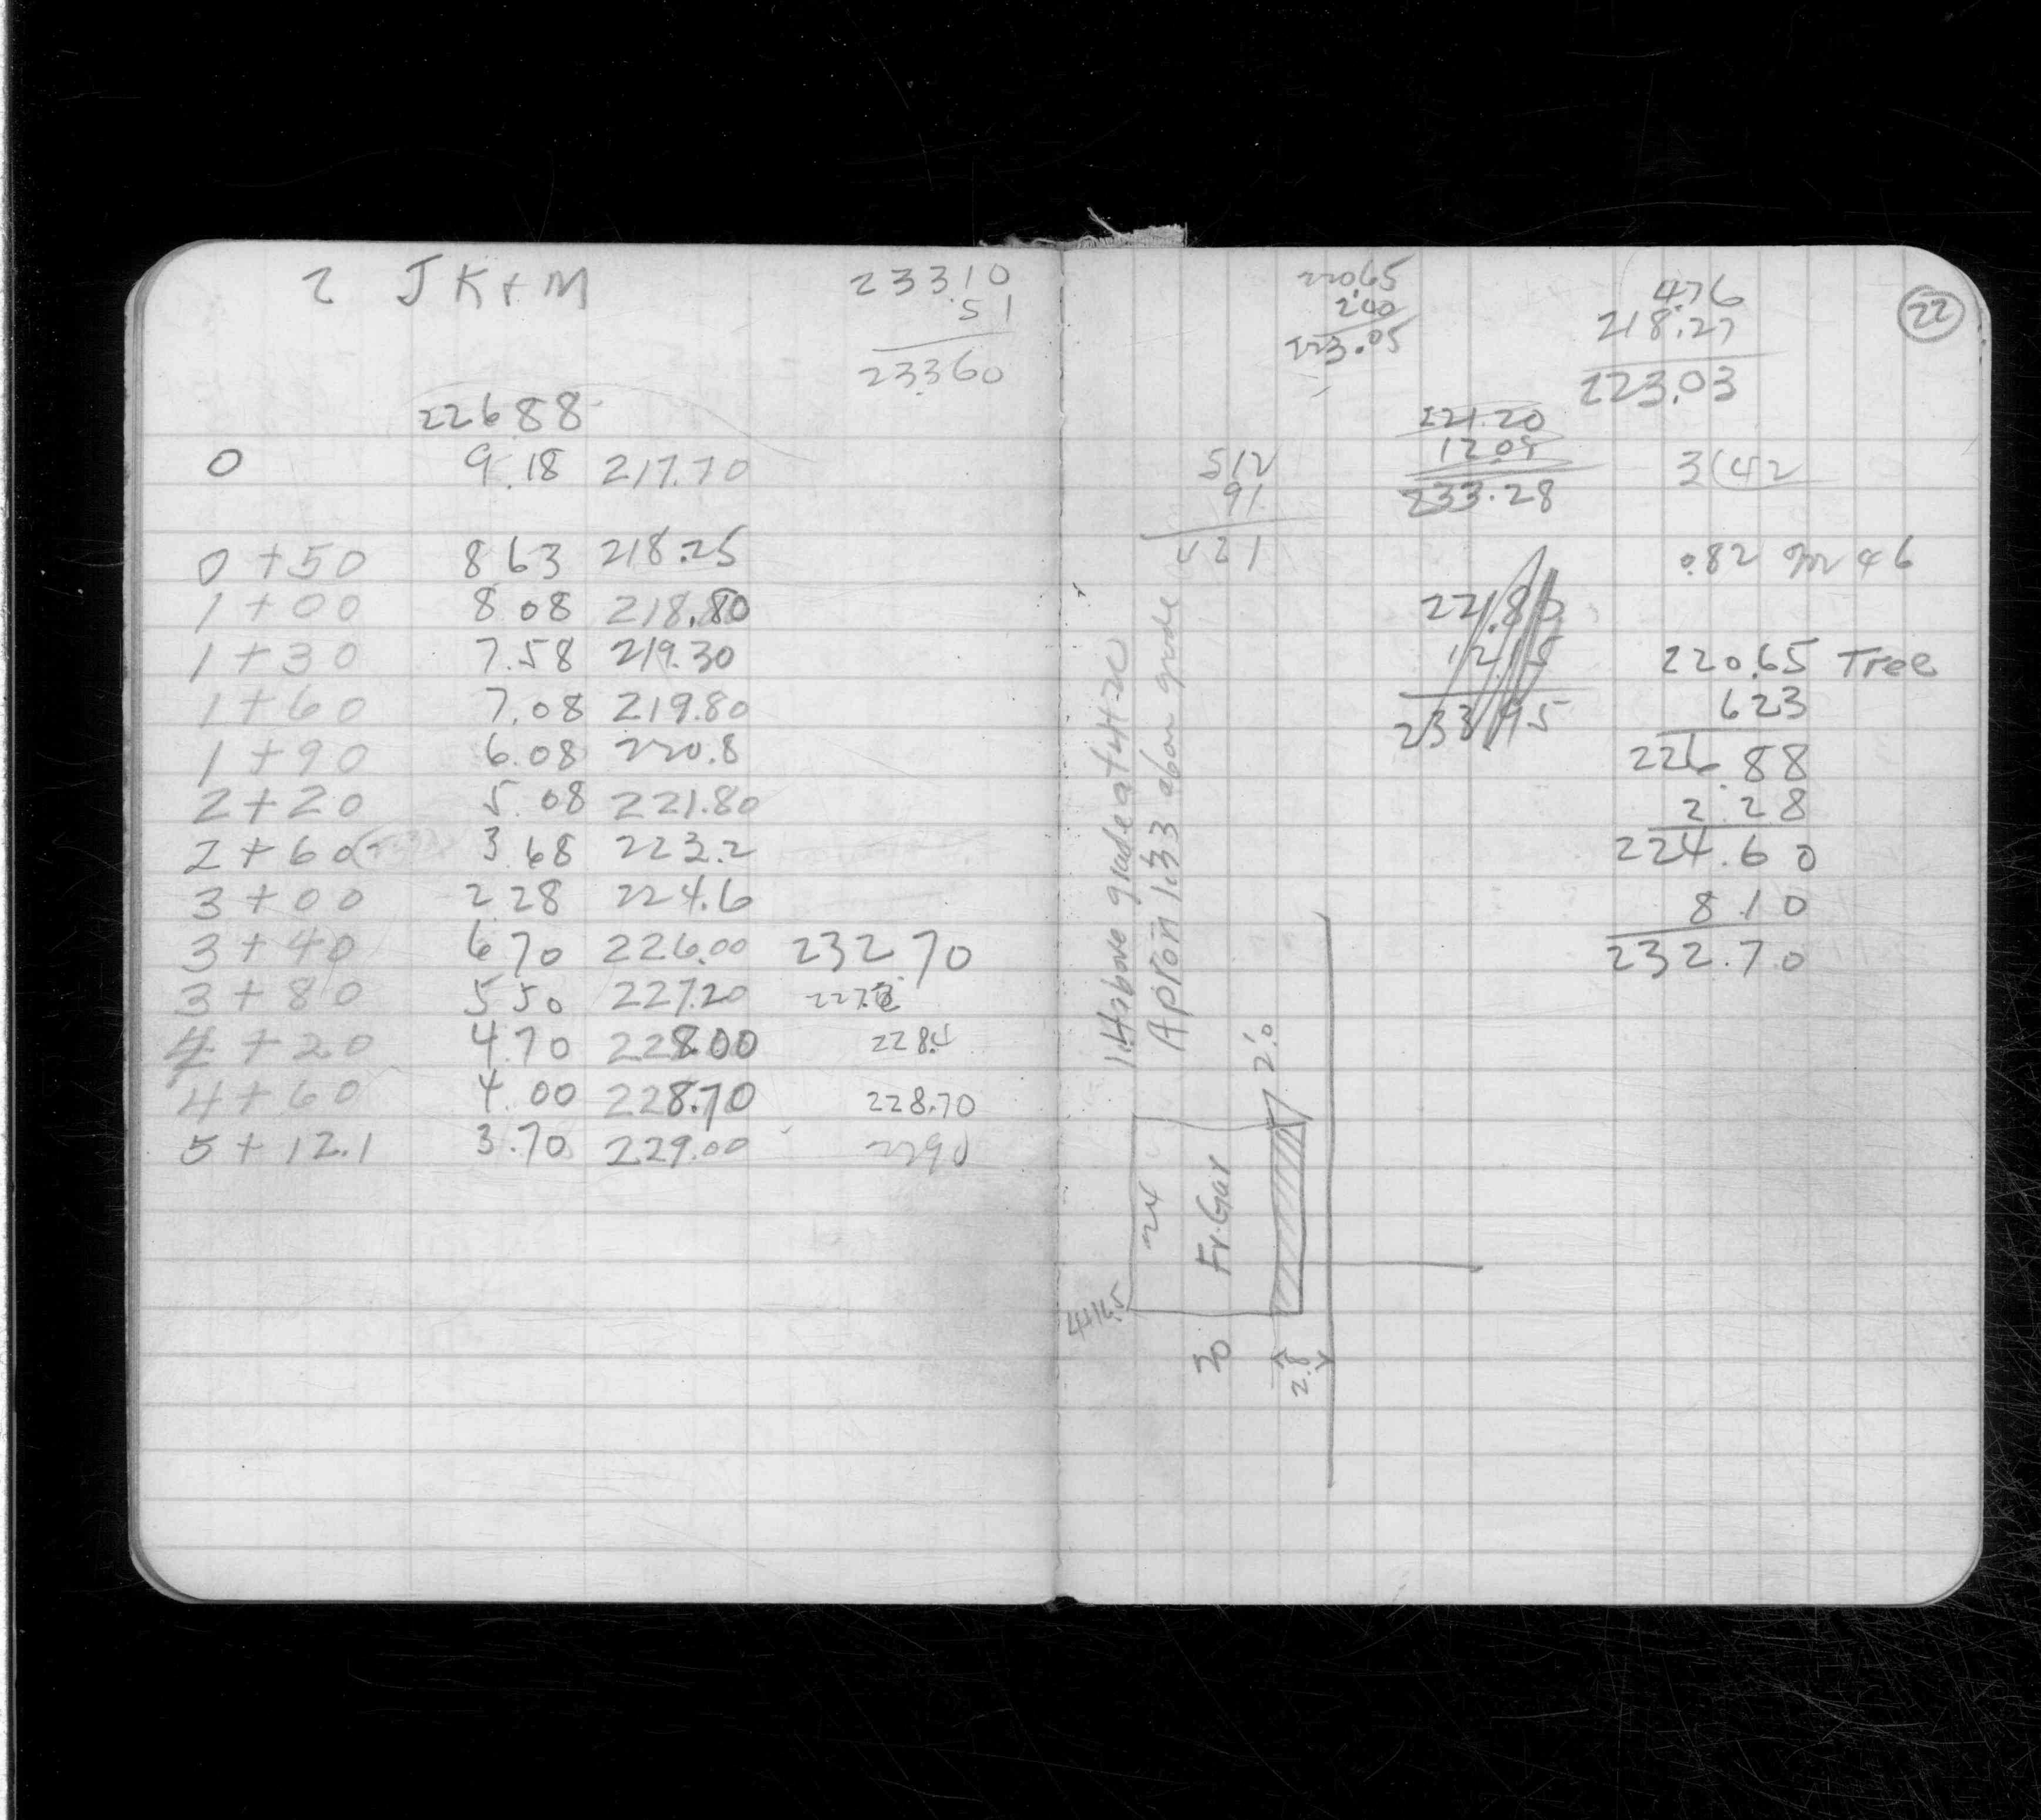 2 JK+M
233.10
.51
233.60
226.88
0 9.18 217.70
0+50 8 63 218.25
1+00 8 08 218.80
1+30 7.58 219.30
1+60 7.08 219.80
1+90 6.08 220.8
2+20 5.08 221.80
2+60 3.68 223.2
3+00 2 28 224.6
3+40 6 70 226.00 232 70
3+80 5 50 227.20
4+20 4.70 228.00 228.4
4+60 4.00 228.70 228.70
5+12.1 3.70 229.00 2290
22
220.65
2.40
223.05
4.76
218.27
223.03
221.20
12.08
233.28
512
91
421
3(42
.82 for 46
221.80
12.15
233.95
220.65 Tree
6 23
226.88
2.28
224.60
8 10
232.70
above grade at
Apron 1.33 above grade
2.0
24
Fr. Gar
4+16.5
20
2.8